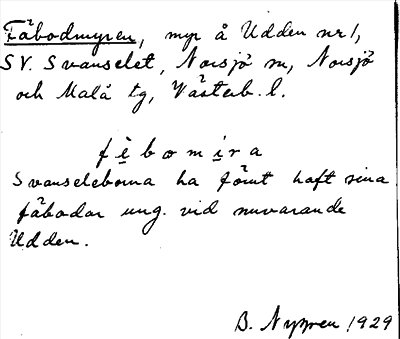 Fäbodmyren, myr å Udden nr 1,
SV. Svanselet, Norsjö sn, Norsjö
och Malå tg, Västerb. l.
fè̱bomi̱ra
Svanseleborna ha förut haft sina
fäbodar ung. vid nuvarande
Udden.
B. Nygren 1929